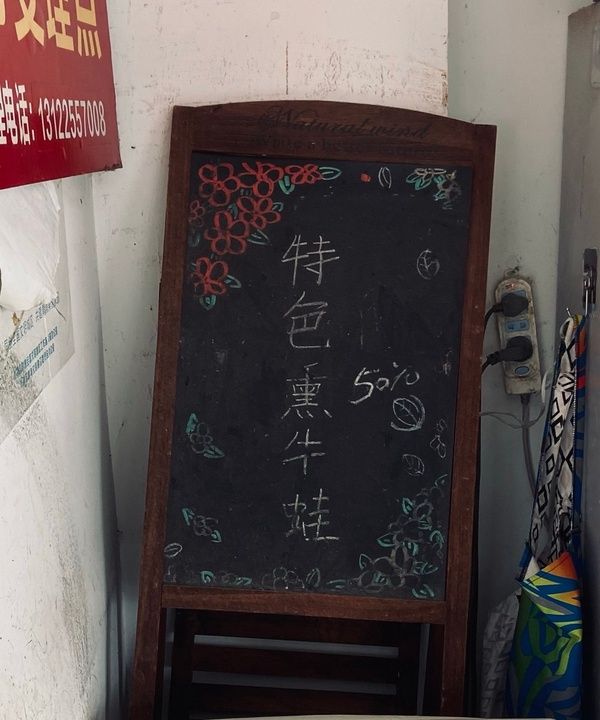 受理点
电话: 13122557008
Natural wind
特色熏牛蛙
50%